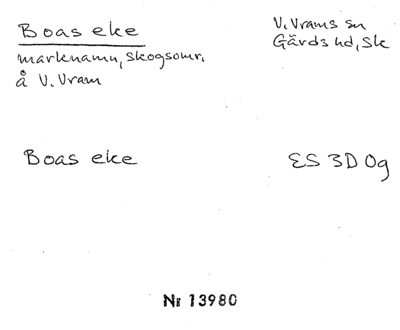 Boas eke
V. Vrams sn
Gärds hd, Sk
marknamn, skogsomr.
å V. Vram
Boas eke
ES 3D Og
Nr 13980